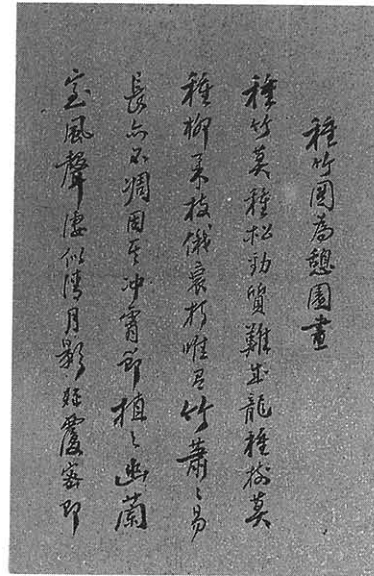 種竹圖為憩園畫
種竹莫種松勁質難成龍種樹莫
種柳柔枝俄衰朽唯君竹蕭〻易
長亦不凋固至冲霄節植〻幽蘭
室風聲凄似清月影好覆密即